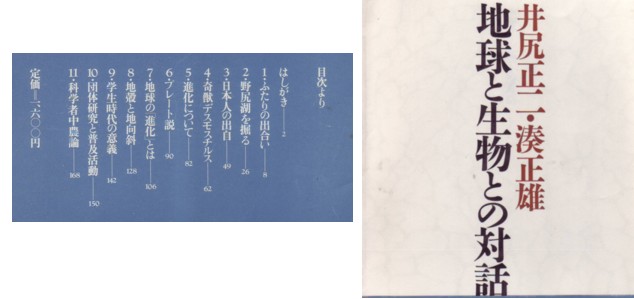 目次より
はしがき——2
1・ふたりの出合い——8
2・野尻湖を掘る——26
3・日本人の出自——49
4・奇獣デスモスチルス——62
5・進化について——82
6・プレート説——90
7・地球の〝進化〟とは——106
8・地殻と地向斜——128
9・学生時代の意義——142
10・団体研究と普及活動——150
11・科学者中農論——168
定価＝一、六〇〇円
井尻正二・湊正雄
地球と生物との対話